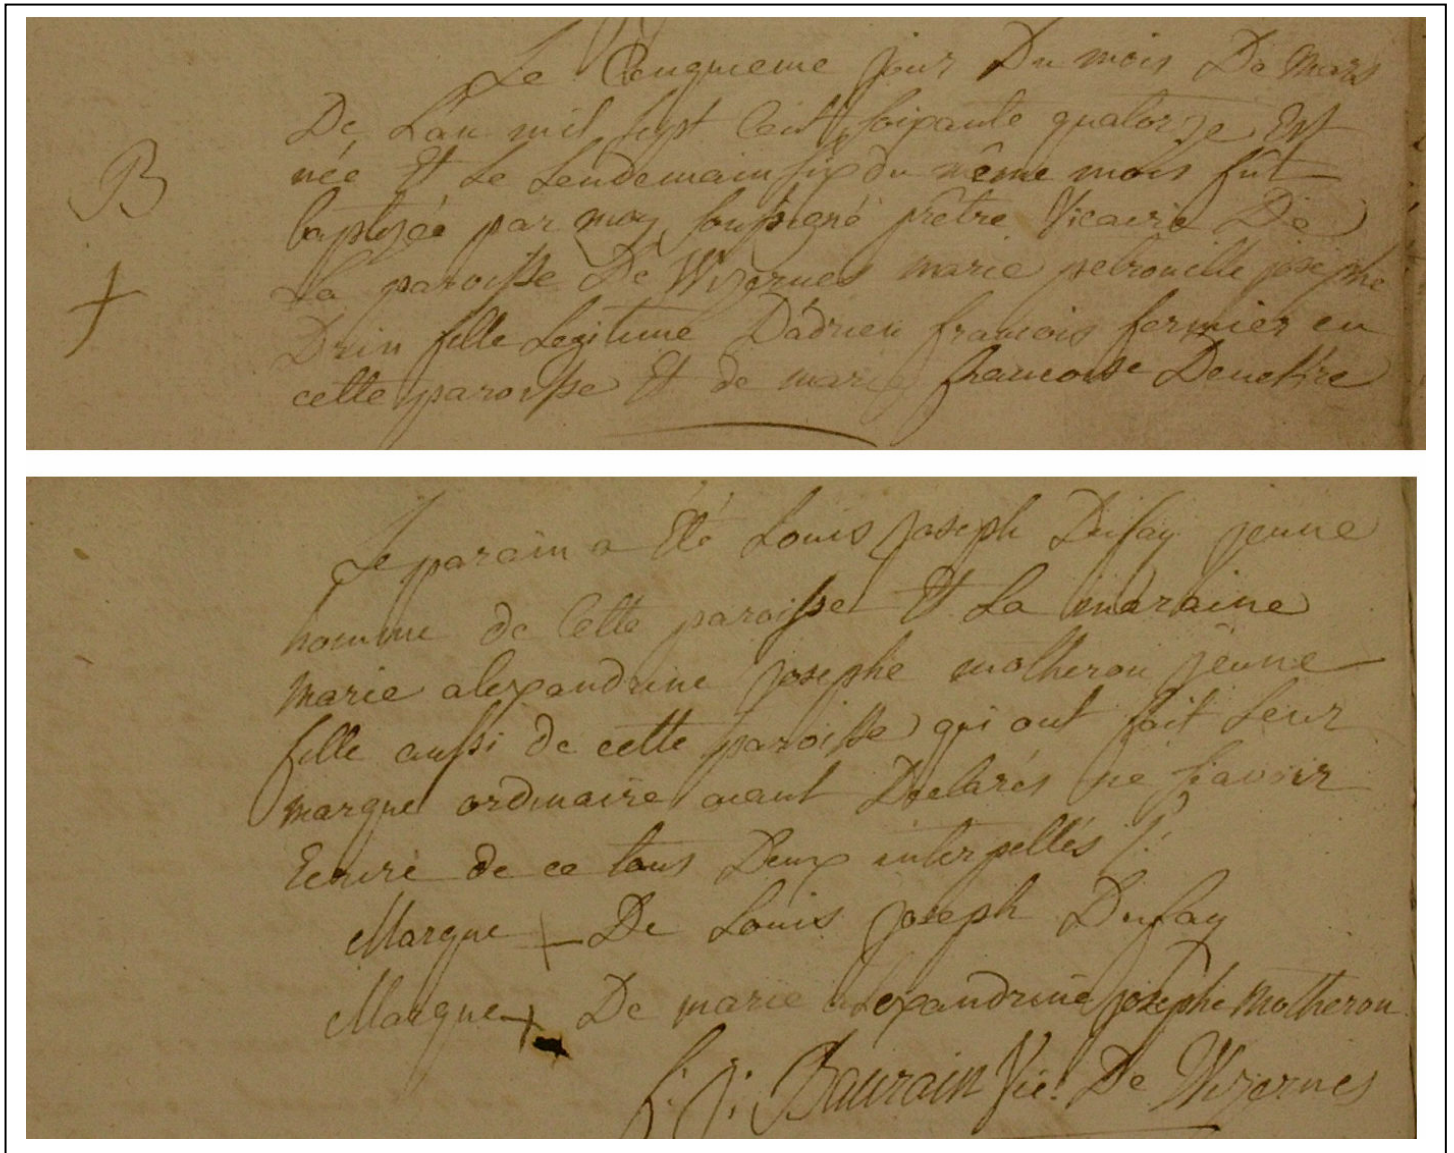 Le Cinquieme jour Du mois De Mars
De L'an mil sept Cent soixante quatorze Est
B
née Et Le Lendemain six du même mois fût
baptisée par moy soussigné prêtre Vicaire De
La paroisse De Wizernes marie petronille josephe
+
Drin fille Legitime D'adrien francois fermier en
cette paroisse Et de marie francoise
Le parain a Eté Louis joseph Dufay jeune
homme de Cette paroisse Et La maraine
marie alexandrine josephe motheron jeune
fille aussi de cette paroisse qui ont fait Leur
marque ordinaire aiant Declarés ne sçavoir
Ecrire de ce tous Deux interpellés /:
Marque + De Louis joseph Dufay
Marque + De marie alexandrine josephe Motheron
Baurain Vic: De Wizernes